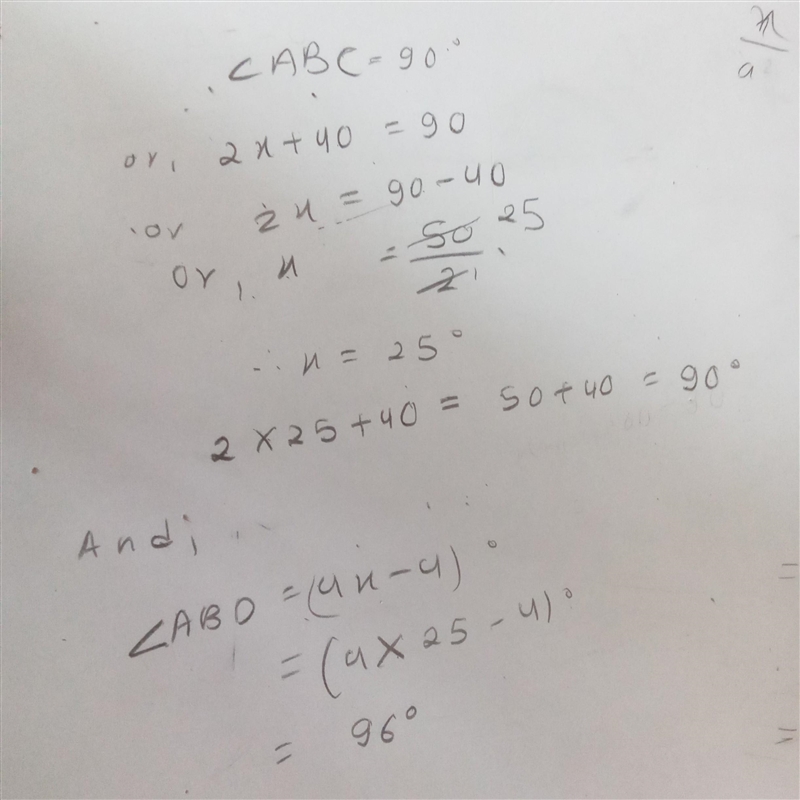 ∠ABC = 90°
or, 2x + 40 = 90
or 2x = 90 - 40
or, x = 50/2 25
∴ x = 25°
2 × 25 + 40 = 50 + 40 = 90°
And,
∠ABD = (4x - 4)°
= (4 × 25 - 4)°
= 96°
x/a
=
=